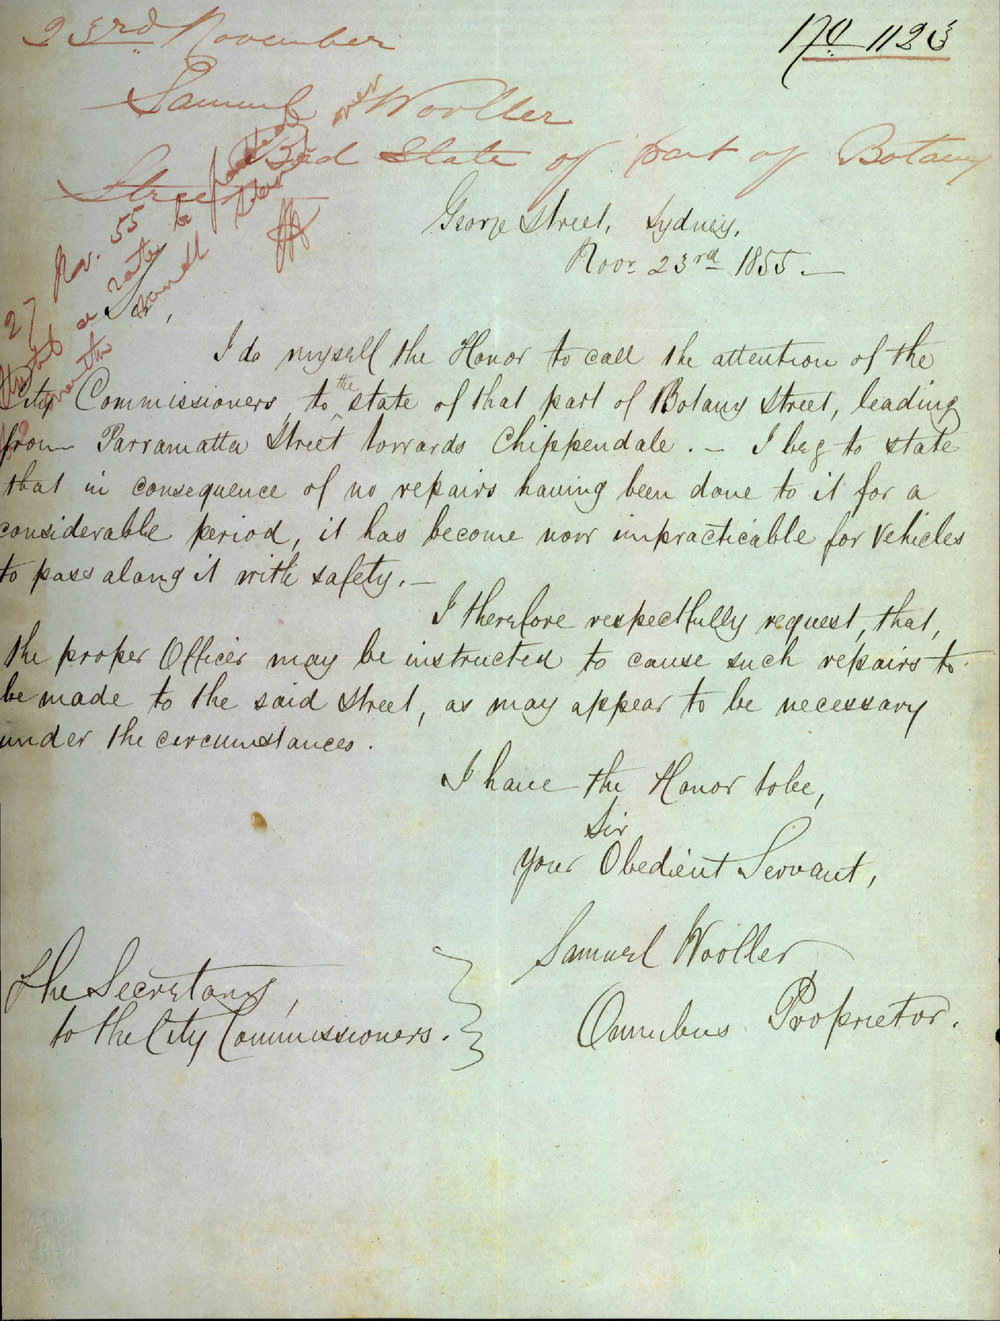 23rd November
No 1123
Samuel Wooller
Bad State of part of Botany
Street
27 Nov. 55
a rate to be
over
George Street, Sydney,
Novr 23rd 1855.—
Sir,
I do myself the Honor to call the attention of the
City Commissioners, to the state of that part of Botany Street, leading
from Parramatta Street towards Chippendale. — I beg to state
that in consequence of no repairs having been done to it for a
considerable period, it has become now impracticable for Vehicles
to pass along it with safety. —
I therefore respectfully request, that,
the proper Officer may be instructed to cause such repairs to
be made to the said Street, as may appear to be necessary
under the circumstances.
I have the Honor to be,
Sir
Your Obedient Servant,
Samuel Wooller
Omnibus Proprietor.
The Secretary,
to the City Commissioners.